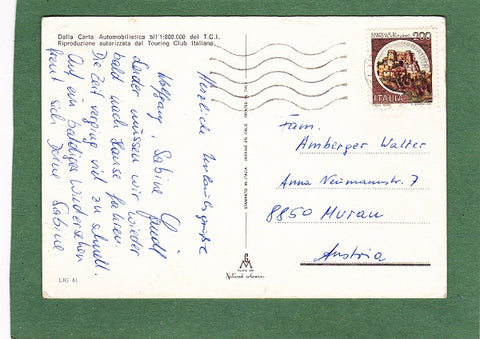 Dalla Carta Automobilistica all'1:800.000 del T.C.I.
Riproduzione autorizzata dal Touring Club Italiano.
Herzliche Urlaubsgrüße
Wolfgang, Sabine
Leider müssen wir wieder
bald nach Hause fahren.
Die Zeit verging viel zu schnell.
Auf ein baldiges Wiedersehen
freut sich Deine Sabine
LIG 81
200
ITALIA
Fam.
Amberger Walter
Anna Neumannstr. 7
8850 Murau
Austria